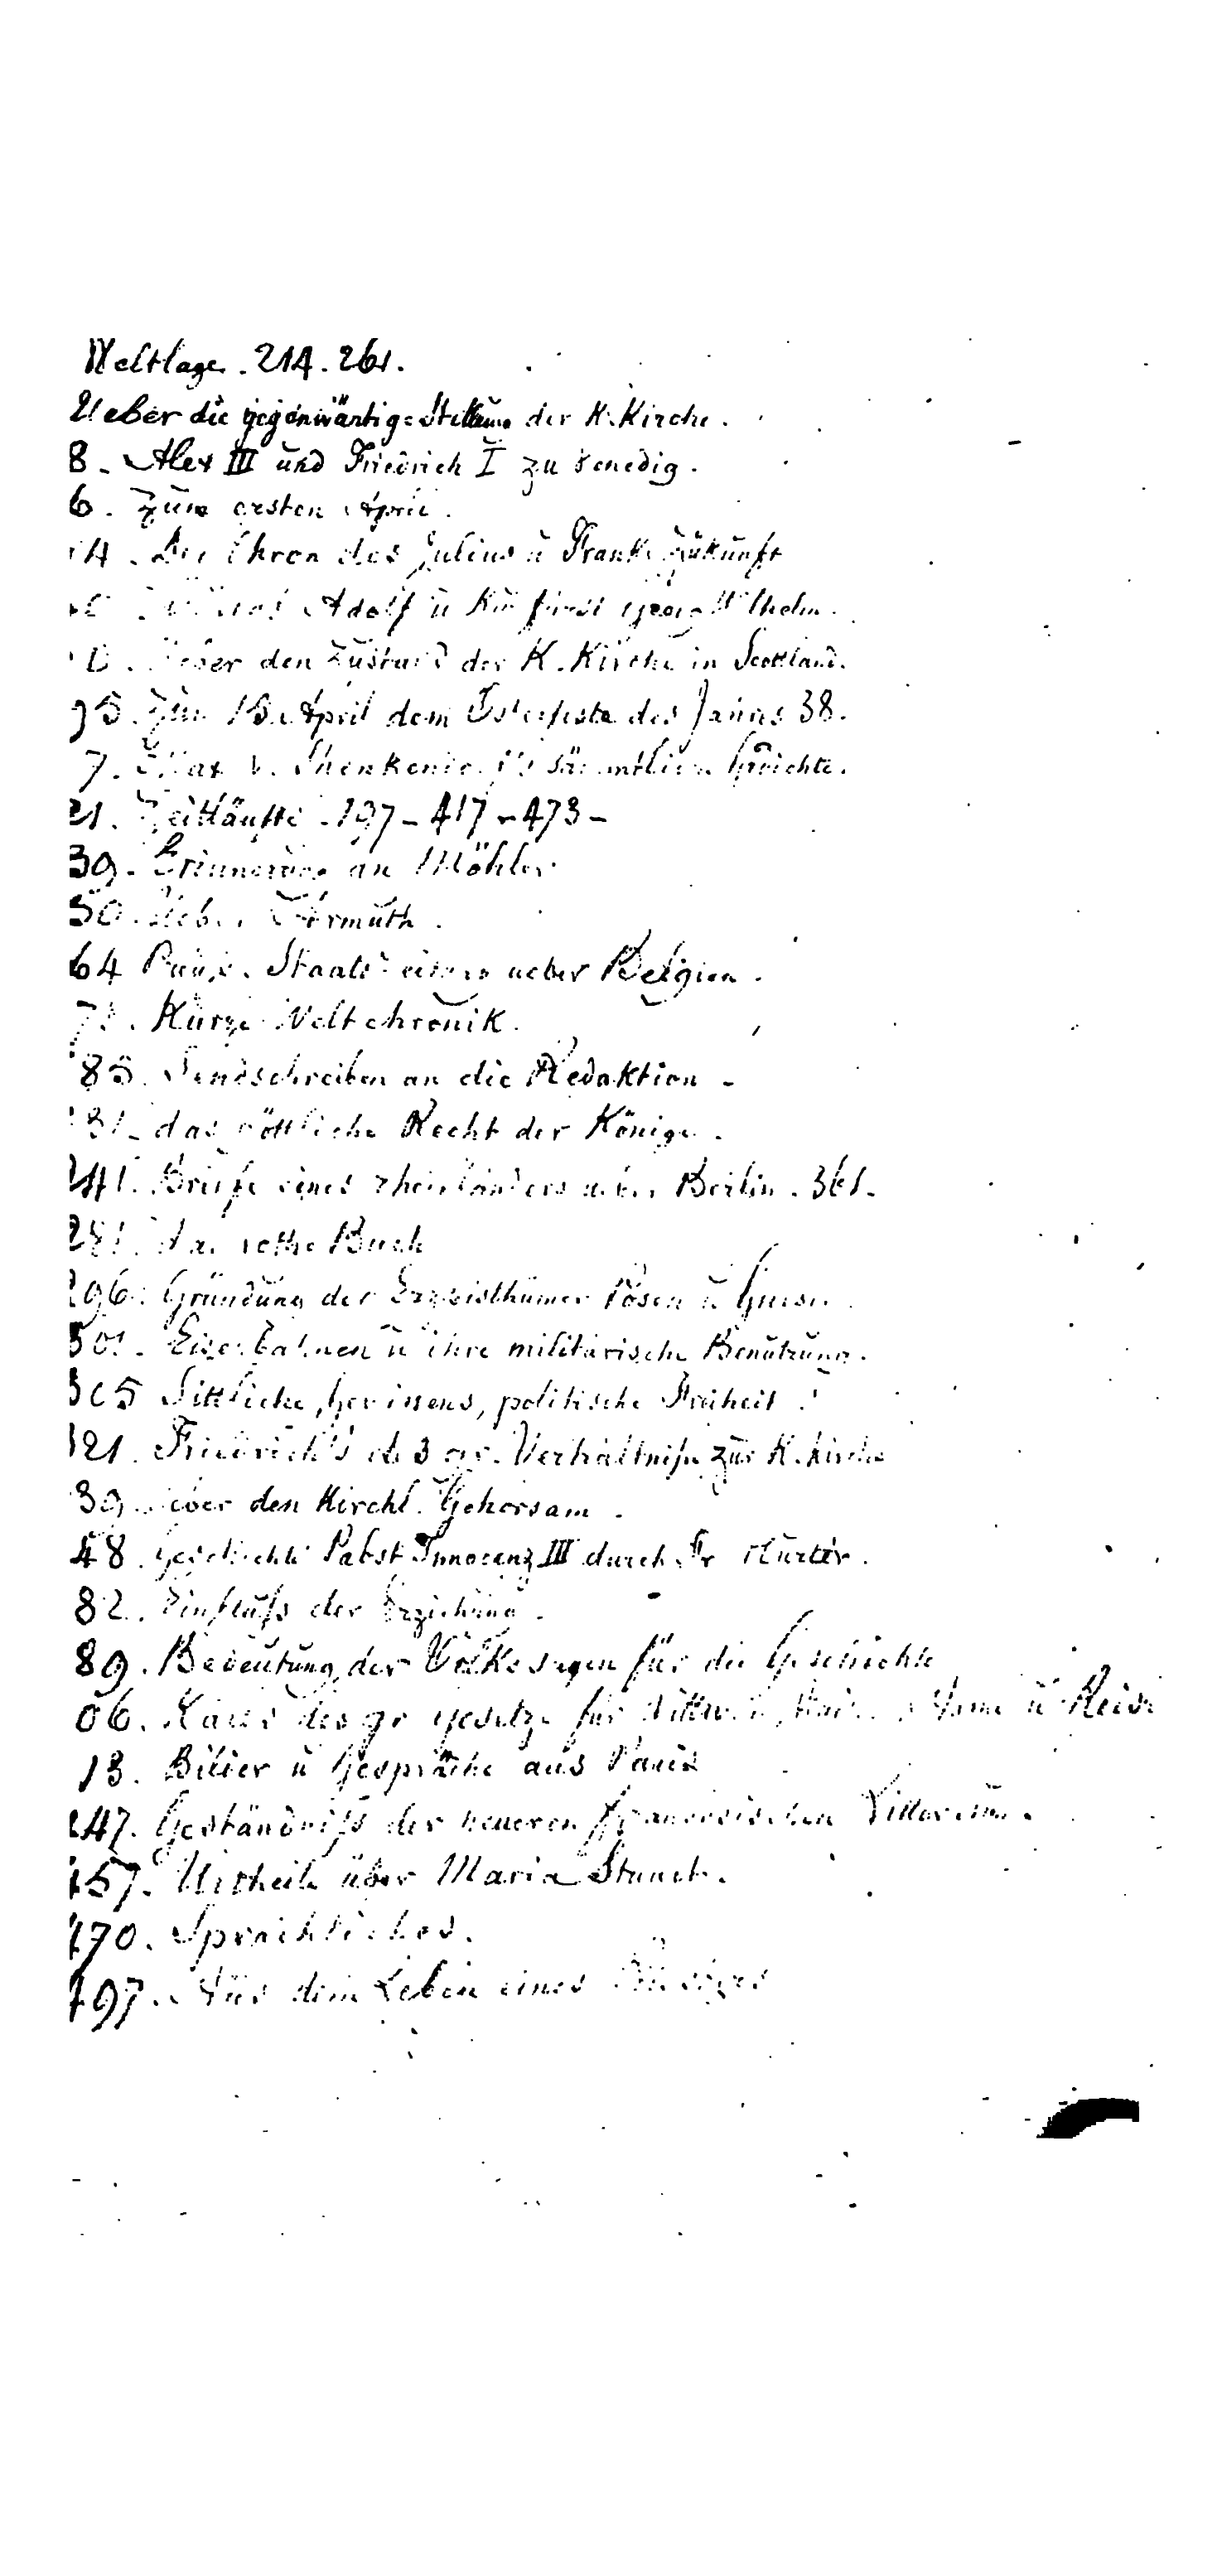 Weltlage. 214. 261.
Ueber die gegenwärtige Stellung der K. Kirche.
8. Alex III und Friedrich I zu Venedig.
6. Zum ersten April.
14. Die Ehren des Julius u Frank. Zukunft
Adolf u Kurfürst Georg Wilhelm.
Ueber den Zustand der K. Kirche in Scottland.
95. Zum 15. April dem Osterfeste des Jahres 38.
7. Max v. Shenkendorf's sämmtliche Gedichte.
21. Zeitläufte. 197 - 417 - 473 -
39. Erinnerung an Möhler.
50. Ueber Armuth.
64 Preuss. Staats ueber Religion.
Kurze Weltchronik.
85. Sendschreiben an die Redaktion -
31. das göttliche Recht der Könige.
241. Briefe eines Rheinländers ueber Berlin. 361.
281. das rothe Buch
296. Gründung der Erzbisthümer Posen u Gnesen.
301. Eisenbahnen u ihre militärische Benützung.
305 Sittliche, Gewissens, politische Freiheit.
321. Friedrich's des gr. Verhältniße zur K. kirche
39. Ueber den Kirchl. Gehorsam.
48. Geschichte Pabst Innocenz III durch Fr Hurter.
82. Einfluß der Erziehung.
89. Bedeutung der Volkssagen für die Geschichte
06. des gr Gesetze für u Reise
13. Bilder u Gespräche aus Paris
447. Geständniße der neueren französischen
457. Urtheile über Maria Stuart.
470. Sprachliches.
497. Aus dem Leben eines